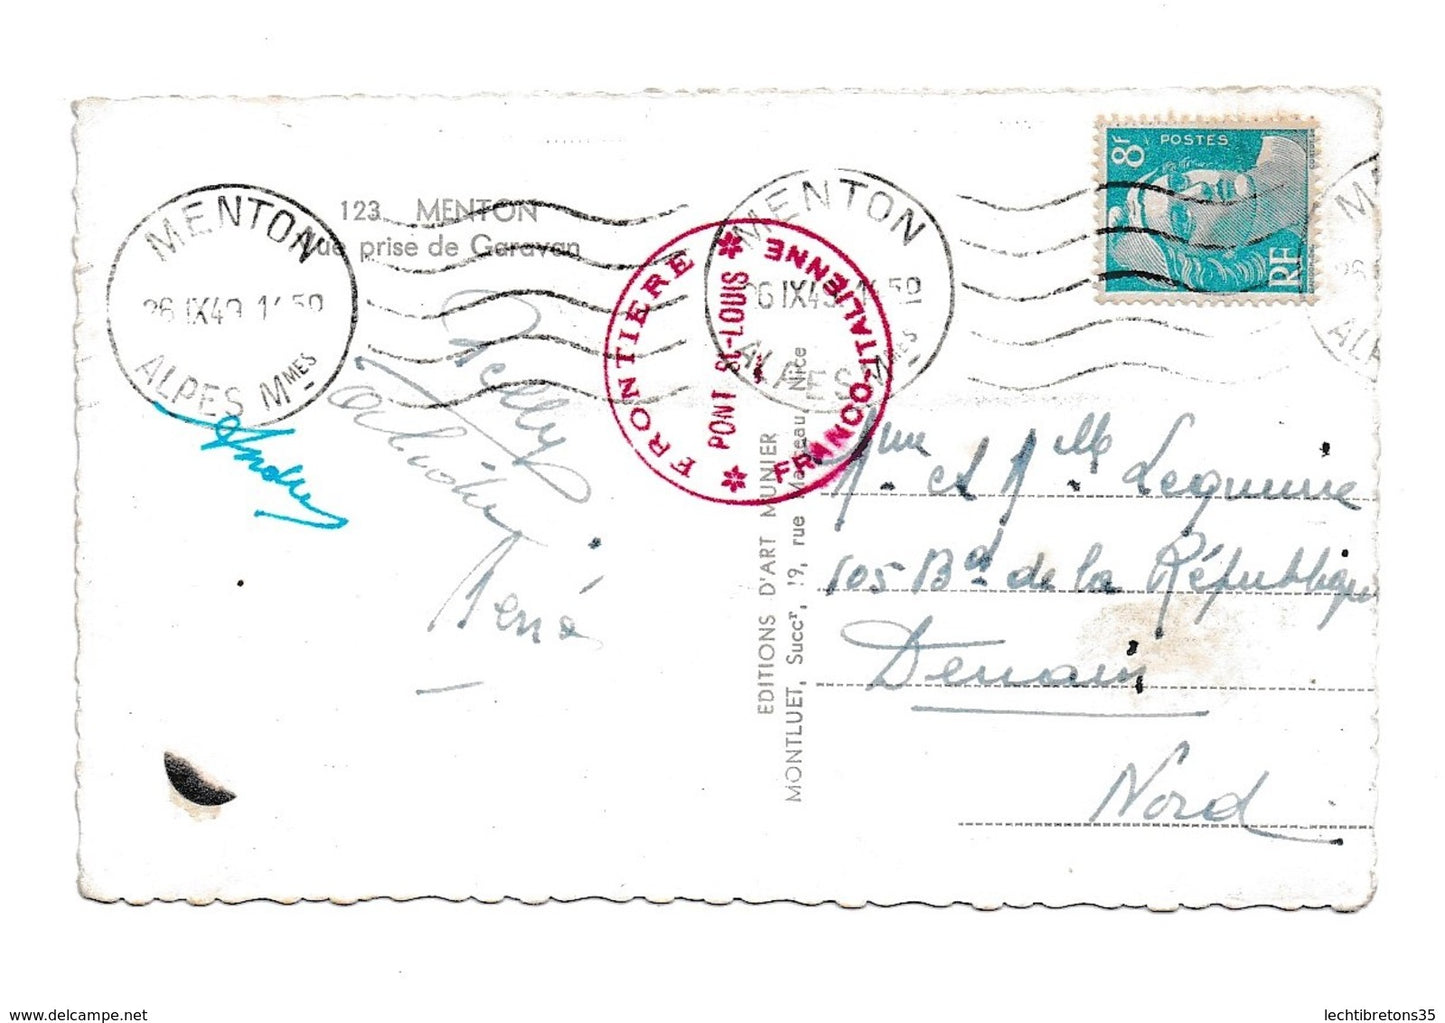 123 MENTON
Vue prise de Garavan
MENTON
26 IX 49 14 50
ALPES MMES
MENTON
26 IX 49 14 50
ALPES MMES
FRONTIERE * FRANCO ITALIENNE *
PONT St-LOUIS
POSTES
8F
RF
André
René
EDITIONS D'ART MUNIER
MONTLUET, Succr, 19, rue Marceau, Nice
Mme et Mlle
105 Bd de la République
Denain
Nord
www.delcampe.net
lechtibretons35